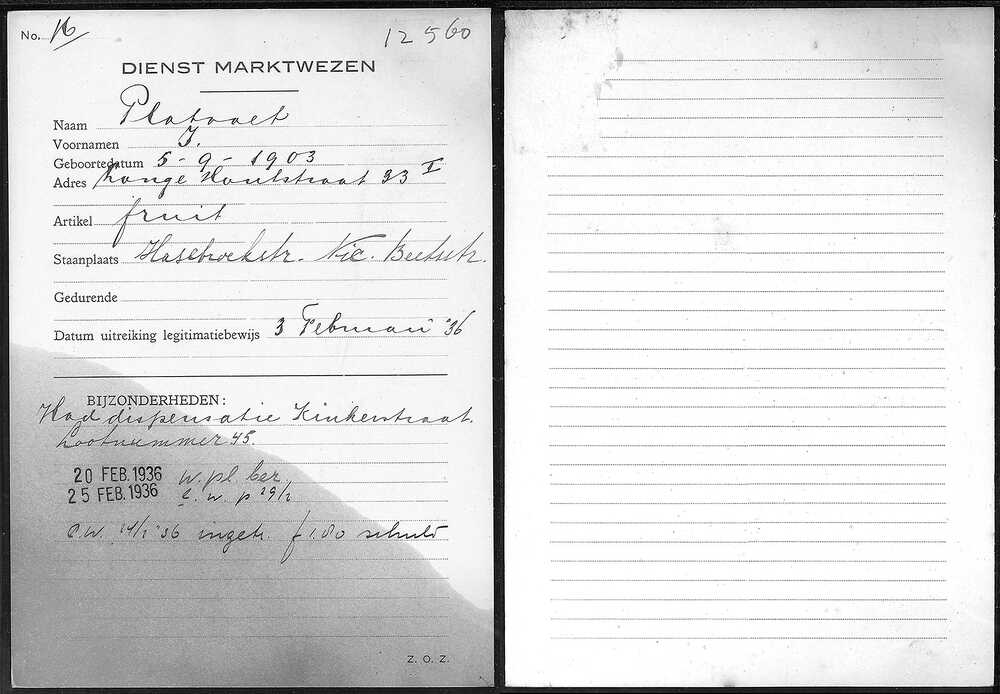 No. 16
12560
DIENST MARKTWEZEN
Naam Platvoet
Voornamen J.
Geboortedatum 5-9-1903
Adres Lange Houtstraat 33 I
Artikel fruit
Staanplaats Hasebroekstr. Nic. Beetsstr.
Gedurende
Datum uitreiking legitimatiebewijs 3 Februari '36
BIJZONDERHEDEN:
Had dispensatie Kinkerstraat.
Lootnummer 45.
20 FEB. 1936 w. pl. ber
25 FEB. 1936 w. p 29/2
'36 inget. f 1.80 schuld
Z. O. Z.